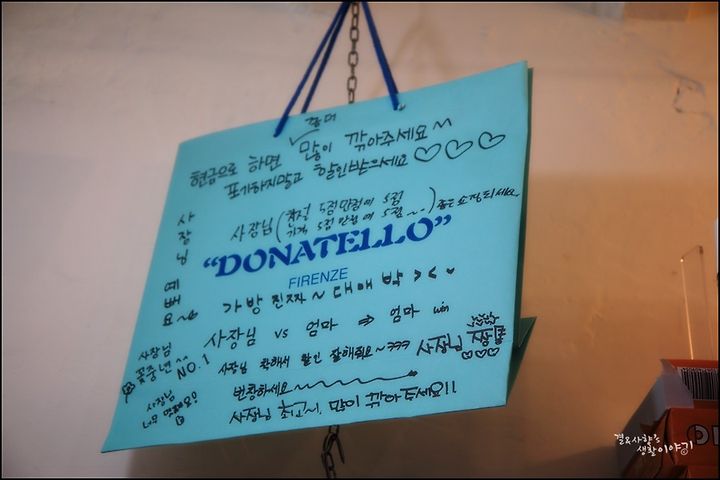 좀 더
현금으로 하면 많이 깎아주세요~
포기하지말고 할인받으세요♡♡♡
사장님(친절 5점만점에 5점
가격 5점만점에 5점~) 좋은 쇼핑되세요
사장님 예뻐요~
"DONATELLO"
FIRENZE
가방 진짜~ 대애박 ><♥
사장님 vs 엄마 ⇒ 엄마 win
사장님
꽃중년^^
NO.1
사장님 착해서 할인 잘해줘요~ㅋㅋㅋ 사장님
번창하세요~
사장님
너무
사장님 최고~, 많이 깎아 주세요!!
결&사랑's
생활이야기